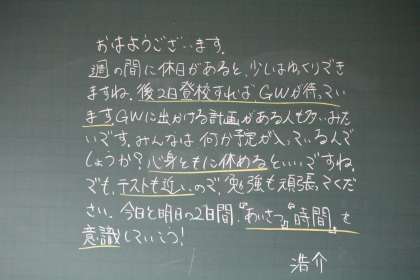 おはようございます。
週の間に休日があると、少しはゆっくりでき
ますね。後2日登校すればGWが待ってい
ますGWに出かける計画がある人も多いみた
いです。みんなは何か予定が入っているんで
しょうか?心身ともに休めるといいですね。
でも、テストも近いので、勉強も頑張ってくだ
さい。今日と明日の2日間、『あいさつ』『時間』を
意識していこう!
浩介